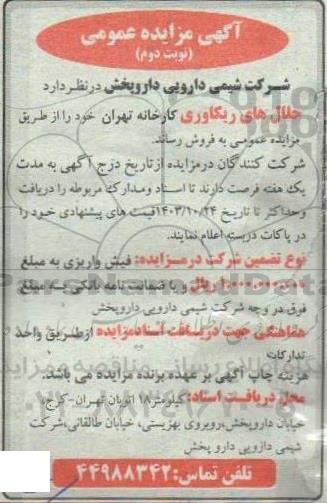 آگهی مزایده عمومی
(نوبت دوم)
شرکت شیمی دارویی داروپخش درنظردارد
حلال های ریکاوری کارخانه تهران خود را از طریق
مزایده عمومی به فروش رساند.
شرکت کنندگان درمزایده از تاریخ درج آگهی به مدت
یک هفته فرصت دارند تا اسناد ومدارک مربوطه را دریافت
وحداکثر تا تاریخ ۱۴۰۳/۱۰/۲۴قیمت های پیشنهادی خود را
در پاکات دربسته اعلام نمایند.
نوع تضمین شرکت درمزایده: فیش واریزی به مبلغ
ریال و یا ضمانت نامه بانکی به مبلغ
فوق در وجه شرکت شیمی دارویی داروپخش
هماهنگی جهت دریافت اسنادمزایده ازطریق واحد
تدارکات
هزینه چاپ آگهی بر عهده برنده مزایده می باشد.
محل دریافت اسناد: کیلومتر۱۸ اتوبان تهران-کرج،
خیابان داروپخش،روبروی بهزیستی، خیابان طالقانی،شرکت
شیمی دارویی دارو پخش
تلفن تماس:۴۴۹۸۸۳۴۲